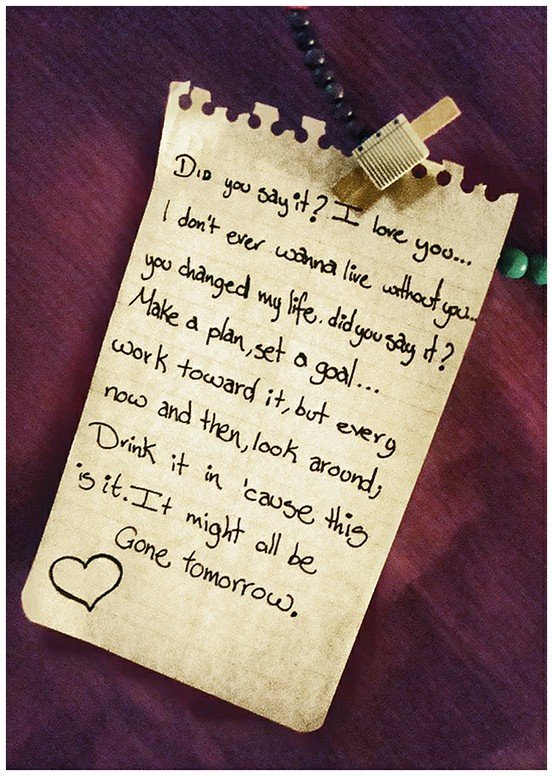 Did you say it? I love you...
I don't ever wanna live without you..
you changed my life. did you say it?
Make a plan, set a goal...
work toward it, but every
now and then, look around;
Drink it in 'cause this
is it. It might all be
Gone tomorrow.